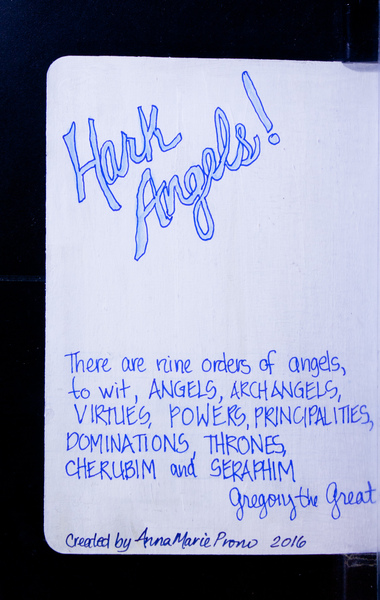 Hark
Angels!
There are nine orders of angels,
to wit, ANGELS, ARCHANGELS,
VIRTUES, POWERS, PRINCIPALITIES,
DOMINATIONS, THRONES,
CHERUBIM and SERAPHIM
Gregory the Great
Created by Anna Marie Prono 2016